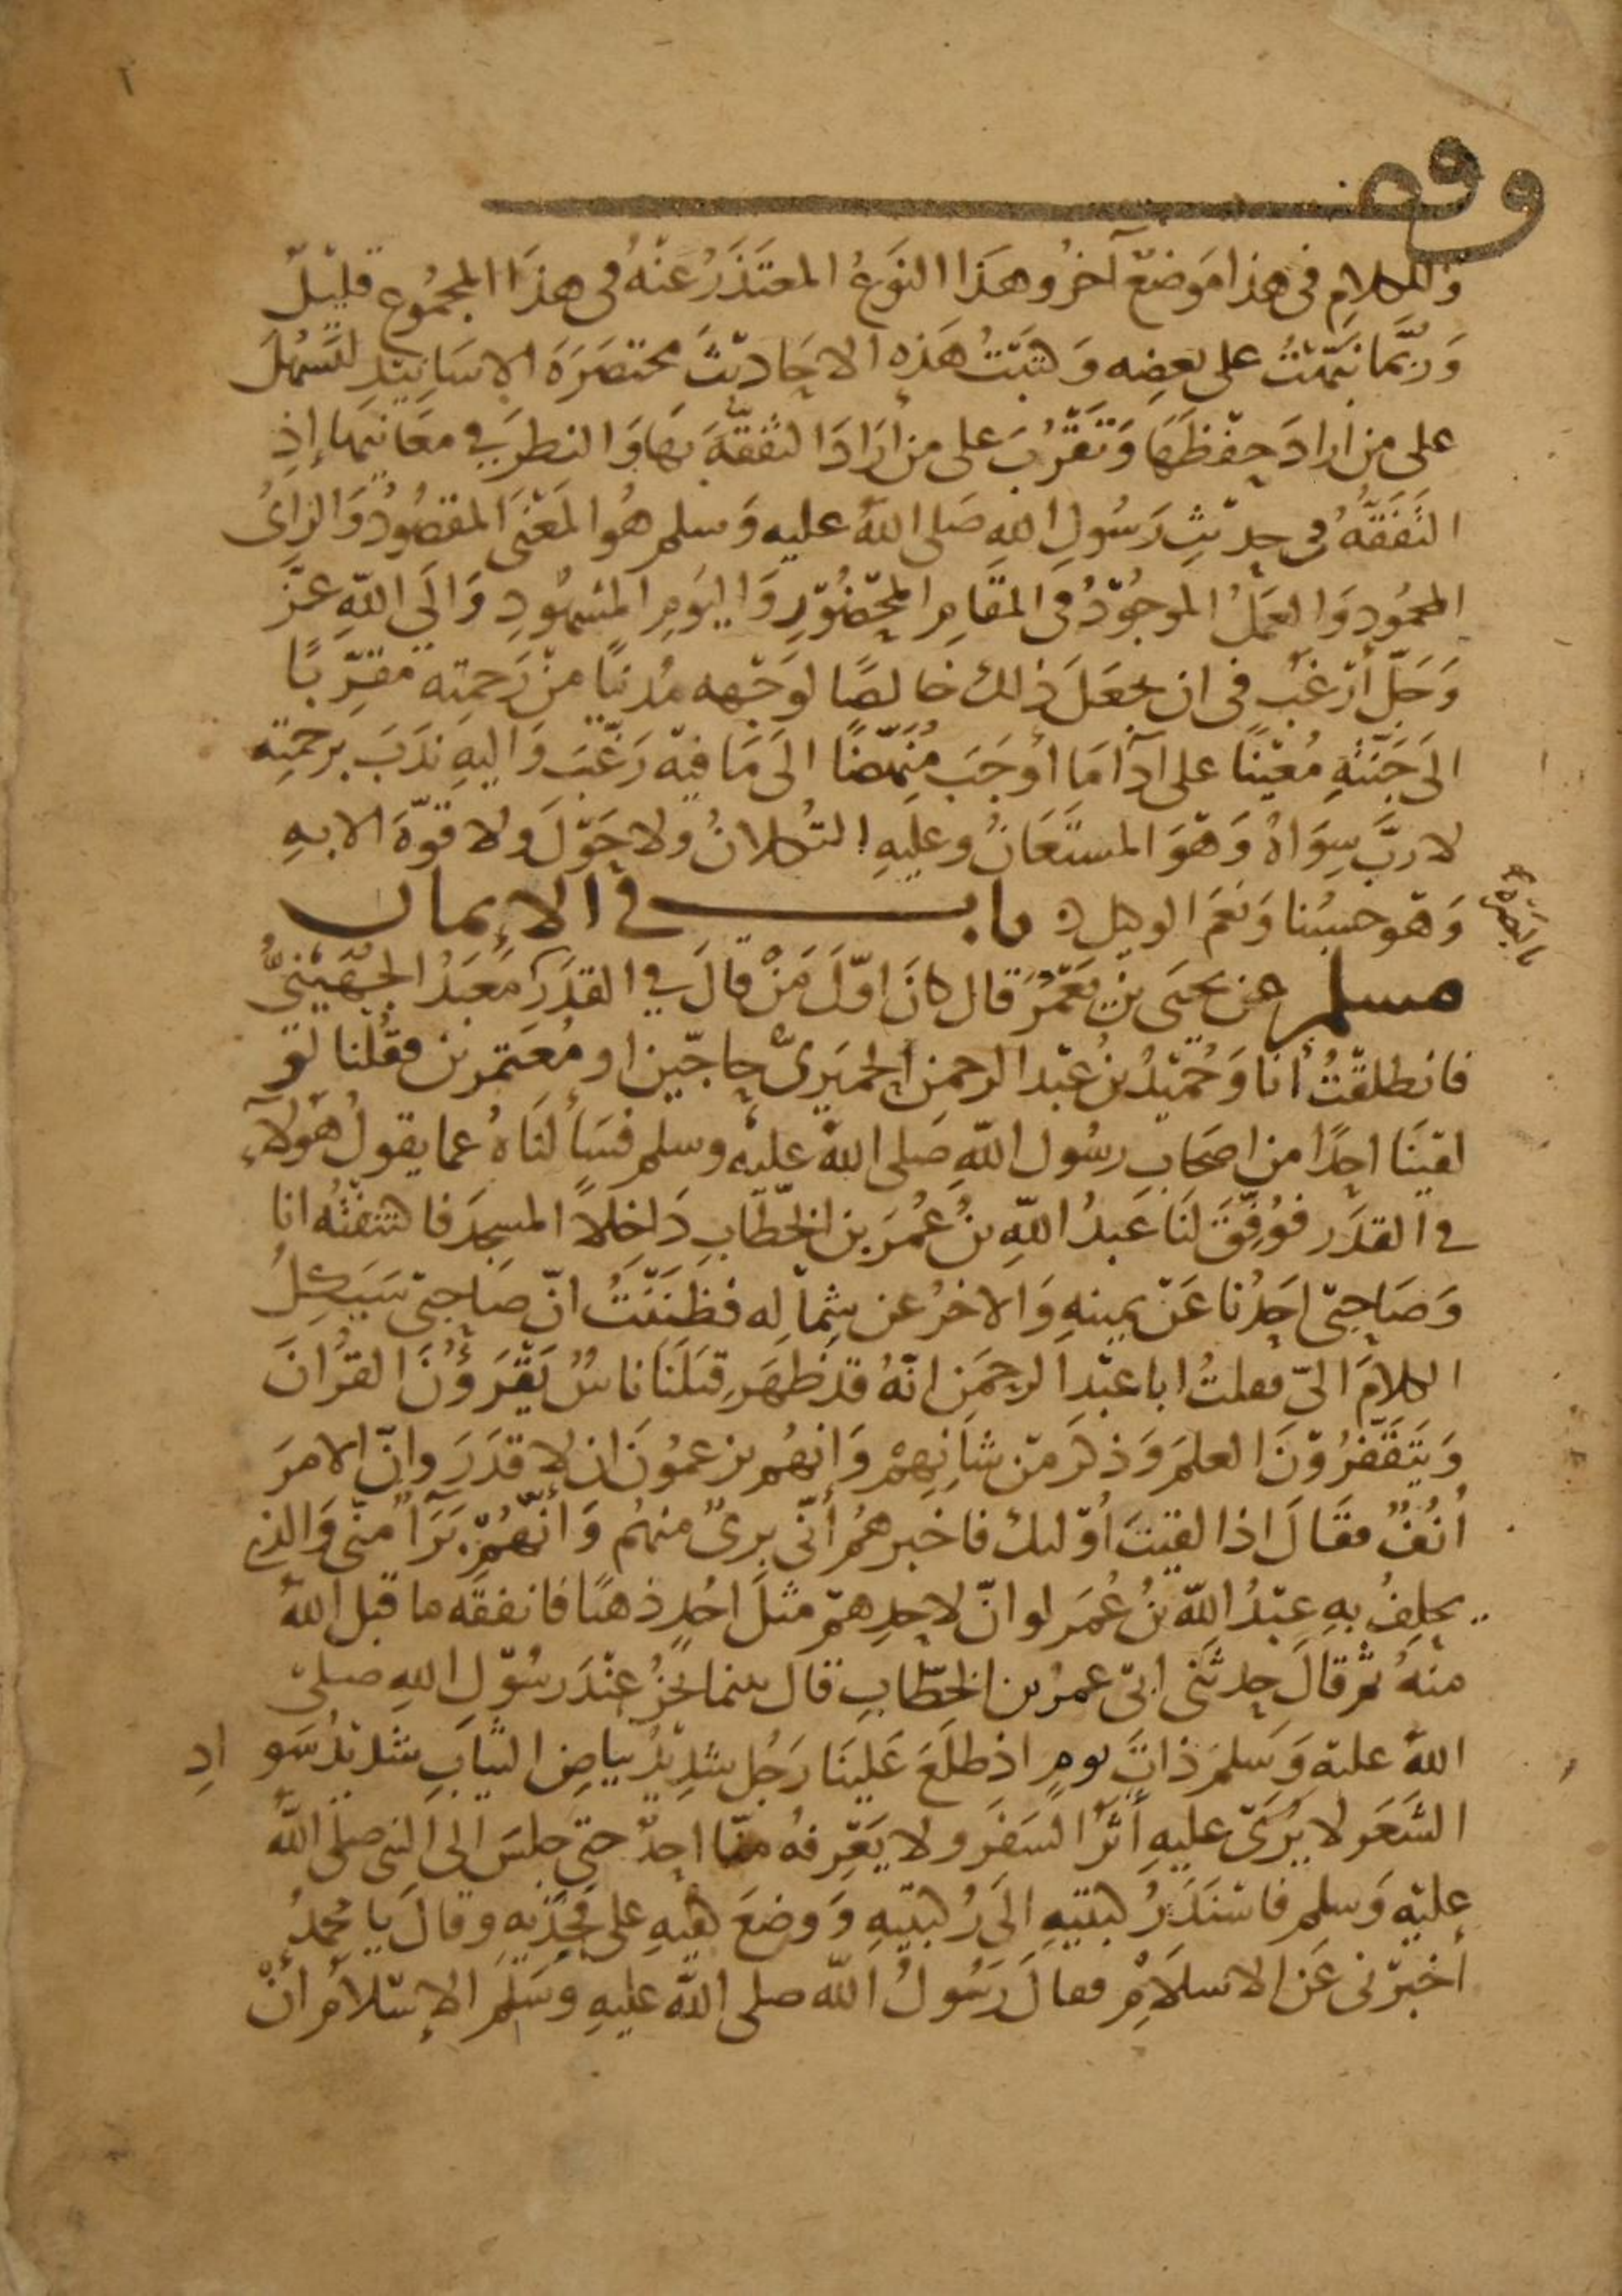 وقف
وللكلام في هذا موضع آخر وهذا النوع المعتذر عنه في هذا المجموع قليل
وربما نبهت على بعضه وكتبت هذه الاحاديث مختصرة الاسانيد لتسهل
على من أراد حفظها وتقرب على من أراد التفقه بها والنظر في معانيها إذ
التفقه في حديث رسول الله صلى الله عليه وسلم هو المعنى المقصود والرأي
المحمود والعمل الموجود في المقام المحضور واليوم المشهود والى الله عز
وجل أرغب في ان يجعل ذلك خالصا لوجهه مدنيا من رحمته مقربا
الى جنته معينا على آدا ما أوجب منهضا الى ما فيه رغب واليه ندب برحمته
لا رب سواه وهو المستعان وعليه التكلان ولا حول ولا قوة الا به
وهو حسبنا ونعم الوكيل باب في الإيمان
مسلم عن يحيى بن يعمر قال كان اول من قال في القدر معبد الجهني
بالبصرة
فانطلقت أنا وحميد بن عبد الرحمن الحميري حاجين او معتمرين فقلنا لو
لقينا احدا من اصحاب رسول الله صلى الله عليه وسلم فسألناه عما يقول هولآء
في القدر فوفق لنا عبد الله بن عمر بن الخطاب داخلا المسجد فاكتنفته انا
وصاحبي احدنا عن يمينه والاخر عن شماله فظننت ان صاحبي سيكل
الكلام الي فقلت ابا عبد الرحمن انه قد ظهر قبلنا ناس يقرؤن القرآن
ويتقفرون العلم وذكر من شأنهم وانهم يزعمون ان لا قدر وان الامر
أنف فقال اذا لقيت أولئك فاخبرهم أني بريء منهم وأنهم برآ مني والذي
يحلف به عبد الله بن عمر لو ان لاحدهم مثل احد ذهبا فانفقه ما قبل الله
منه ثم قال حدثني ابي عمر بن الخطاب قال بينما نحن عند رسول الله صلى
الله عليه وسلم ذات يوم اذ طلع علينا رجل شديد بياض الثياب شديد سواد
الشعر لا يرى عليه أثر السفر ولا يعرفه منا احد حتى جلس الى النبي صلى الله
عليه وسلم فاسند ركبتيه الى ركبتيه ووضع كفيه على فخذيه وقال يا محمد
أخبرني عن الاسلام فقال رسول الله صلى الله عليه وسلم الإسلام أن